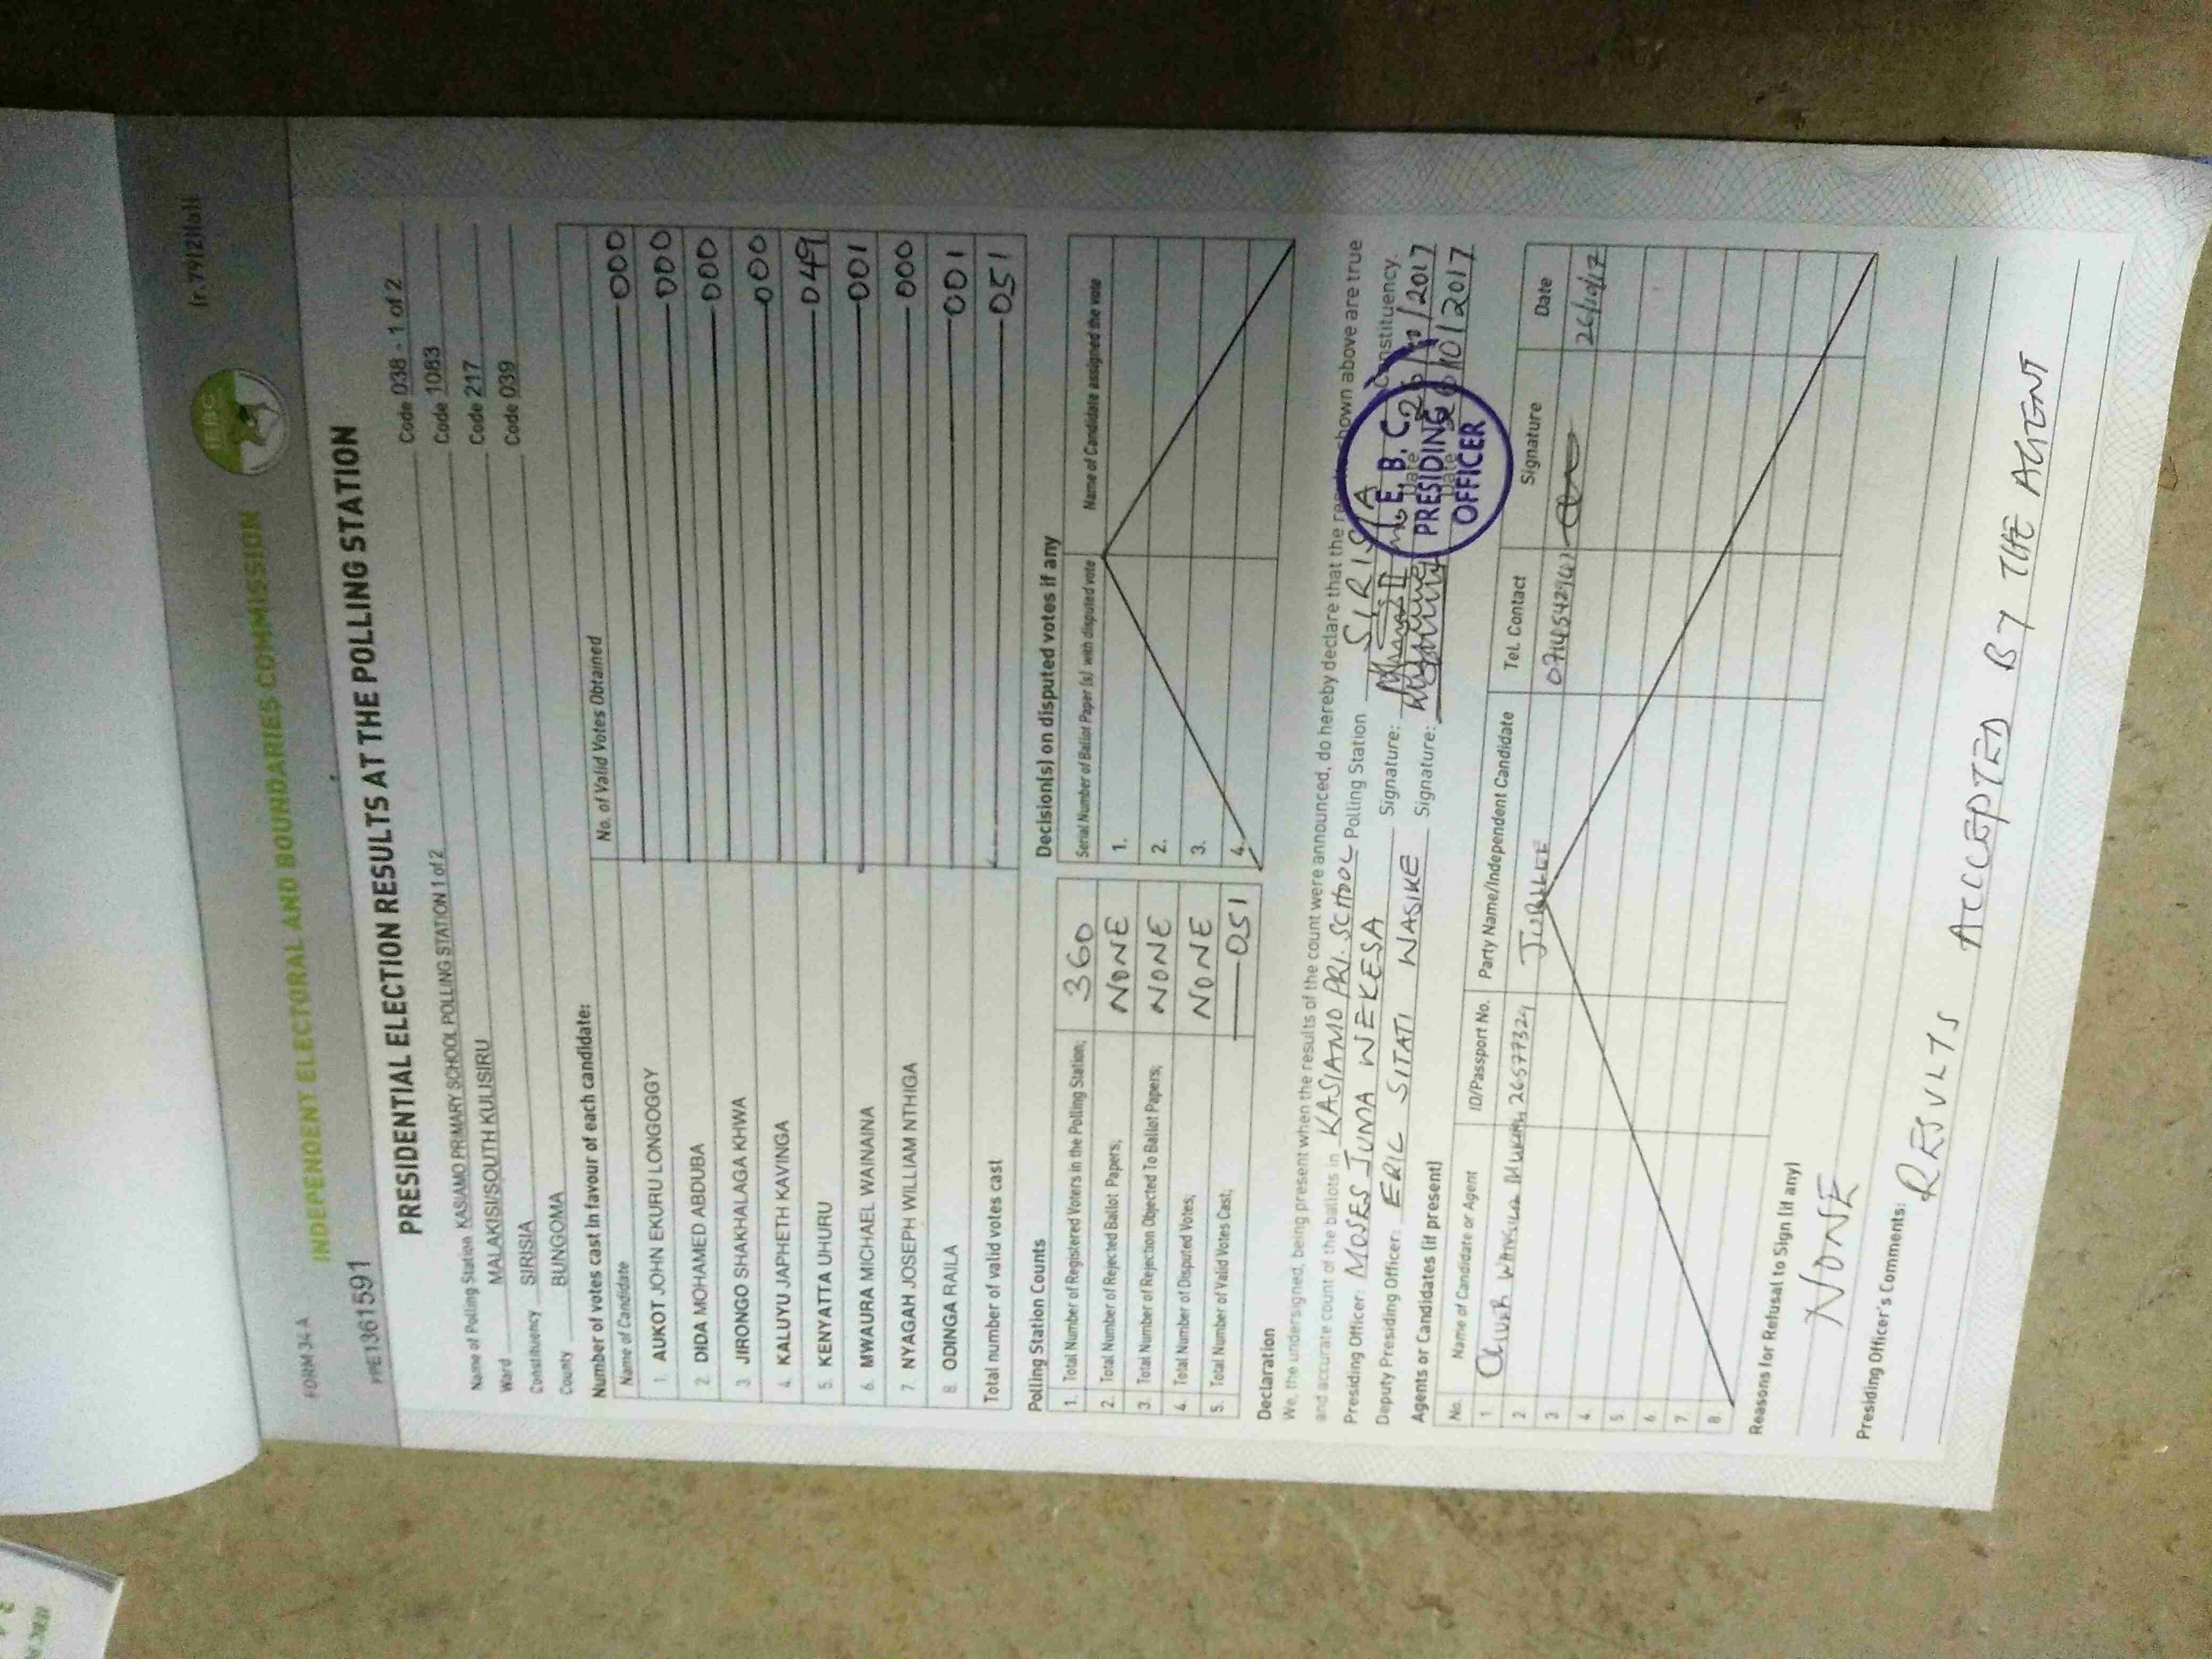 (r.79(2)(a))
IEBC
FORM 34 A
INDEPENDENT ELECTORAL AND BOUNDARIES COMMISSION
PPE1361591
PRESIDENTIAL ELECTION RESULTS AT THE POLLING STATION
Name of Polling Station KASIAMO PRIMARY SCHOOL POLLING STATION 1 of 2 Code 038 - 1 of 2
Ward MALAKISI/SOUTH KULISIRU Code 1083
Constituency SIRISIA Code 217
County BUNGOMA Code 039
Number of votes cast in favour of each candidate:
Name of Candidate No. of Valid Votes Obtained
1. AUKOT JOHN EKURU LONGOGGY 000
2. DIDA MOHAMED ABDUBA 000
3. JIRONGO SHAKHALAGA KHWA 000
4. KALUYU JAPHETH KAVINGA 000
5. KENYATTA UHURU 049
6. MWAURA MICHAEL WAINAINA 001
7. NYAGAH JOSEPH WILLIAM NTHIGA 000
8. ODINGA RAILA 001
Total number of valid votes cast 051
Polling Station Counts
1. Total Number of Registered Voters in the Polling Station; 360
2. Total Number of Rejected Ballot Papers; NONE
3. Total Number of Rejection Objected To Ballot Papers; NONE
4. Total Number of Disputed Votes; NONE
5. Total Number of Valid Votes Cast; 051
Decision(s) on disputed votes if any
Serial Number of Ballot Paper (s) with disputed vote Name of Candidate assigned the vote
1.
2.
3.
4.
Declaration
We, the undersigned, being present when the results of the count were announced, do hereby declare that the shown above are true
and accurate count of the ballots in KASIAMO PRI. SCHOOL Polling Station SIRISIA Constituency.
Presiding Officer: MOSES JUMA WEKESA Signature: Date 26/10/2017
Deputy Presiding Officer: ERIC SITATI WASIKE Signature: Date 26/10/2017
I. E. B. C.
PRESIDING
OFFICER
Agents or Candidates (if present)
No. Name of Candidate or Agent ID/Passport No. Party Name/Independent Candidate Tel. Contact Signature Date
1 26577324 JUBILEE 26/10/17
2
3
4
5
6
7.
8.
Reasons for Refusal to Sign (if any)
NONE
Presiding Officer's Comments:
RESULTS ACCCEPTED BY THE AGENT